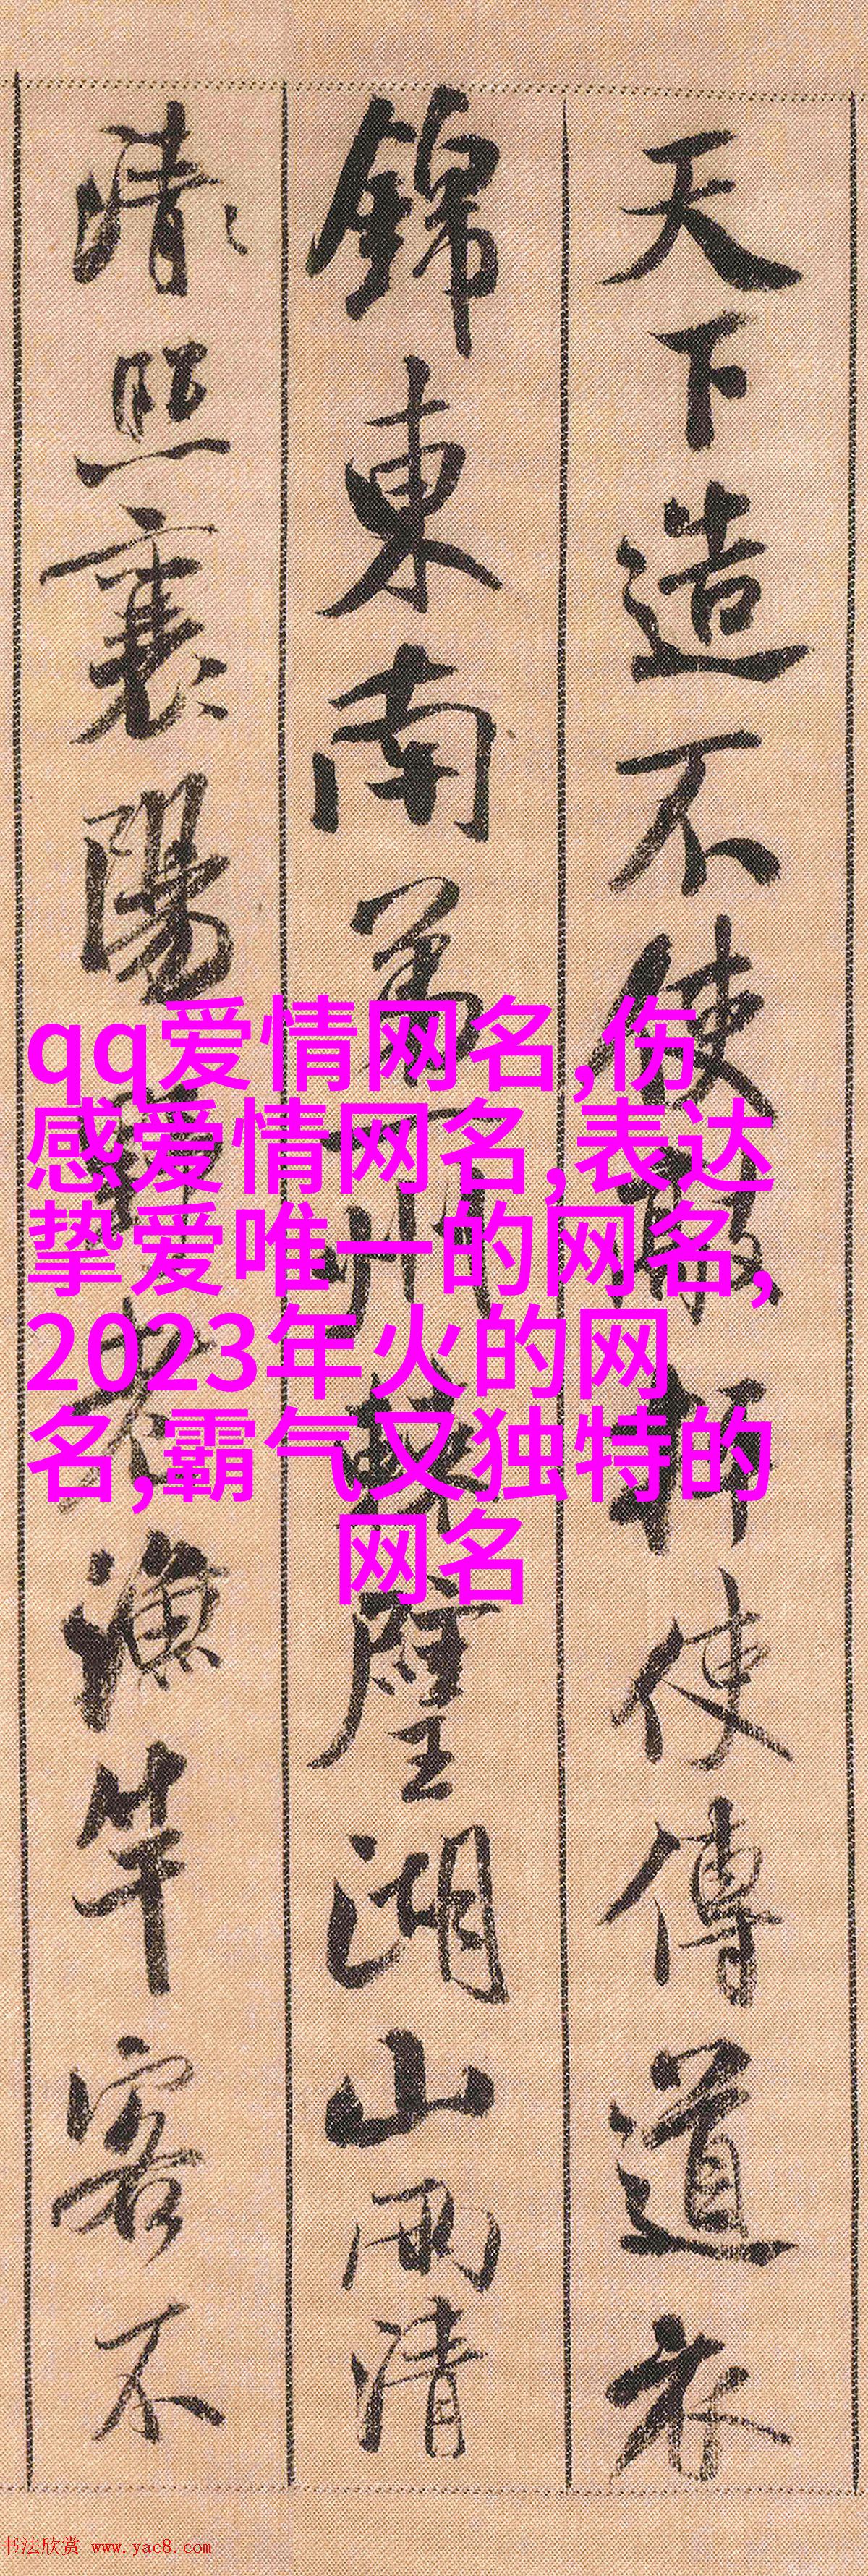 天下造不使敲枰使傳道衣
錦東南第一州棘璧湖山兩清
清照襄陽野老漁竿客不
qq爱情网名,伤
感爱情网名,表达
挚爱唯一的网名,
2023年火的网
名,霸气又独特的
网名
书法欣赏 www.yac8.com